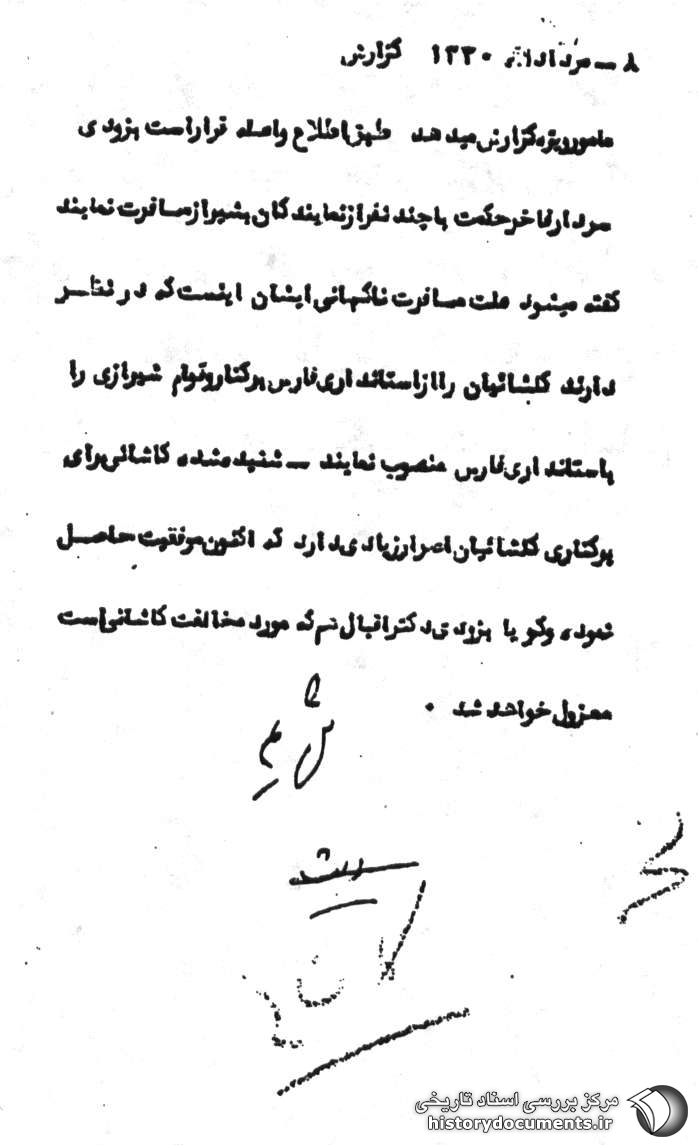 ۸ – مرداد ماه ۱۳۳۰ گزارش
مامور ویژه گزارش میدهد طبق اطلاع واصله قرار است بزودی
سردار فاخر حکمت با چند نفر از نمایندگان بشیراز مسافرت نمایند
گفته میشود علت مسافرت ناگهانی ایشان اینست که در نظر
دارند گلشائیان را از استانداری فارس برکنار و قوام شیرازی را
باستانداری فارس منصوب نمایند – شنیده شده کاشانی برای
برکناری گلشائیان اصرار زیادی دارد که اکنون موفقیت حاصل
نموده و گویا بزودی دکتر اقبال هم که مورد مخالفت کاشانی است
معزول خواهد شد ۰
مرکز بررسی اسناد تاریخی
historydocuments.ir